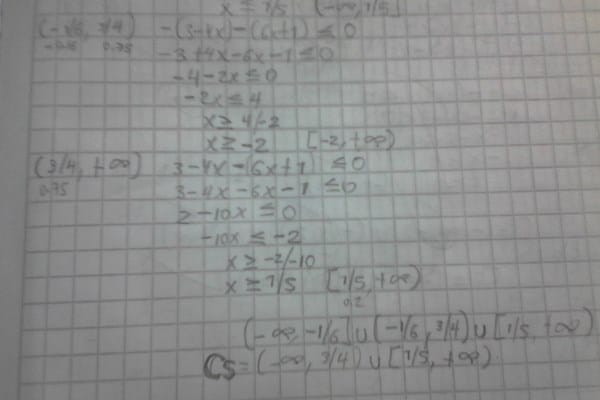 x ≤ 1/5 (-∞, 1/5]
(-1/6, 3/4) -(3-4x)-(6x+1) ≤ 0
-0.16 0.75 -3+4x-6x-1 ≤ 0
-4-2x ≤ 0
-2x ≤ 4
x ≥ 4/-2
x ≥ -2 [-2, +∞)
(3/4, +∞) 3-4x-(6x+1) ≤ 0
0.75 3-4x-6x-1 ≤ 0
2-10x ≤ 0
-10x ≤ -2
x ≥ -2/-10
x ≥ 1/5 [1/5, +∞)
0.2
(-∞, -1/6] ∪ (-1/6, 3/4) ∪ [1/5, +∞)
CS = (-∞, 3/4) ∪ [1/5, +∞)